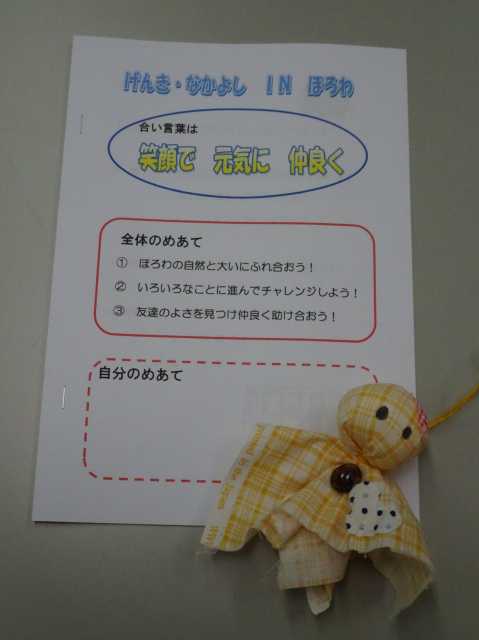 げんき・なかよし IN ほろわ
合い言葉は
笑顔で 元気に 仲良く
全体のめあて
① ほろわの自然と大いにふれ合おう！
② いろいろなことに進んでチャレンジしよう！
③ 友達のよさを見つけ仲良く助け合おう！
自分のめあて